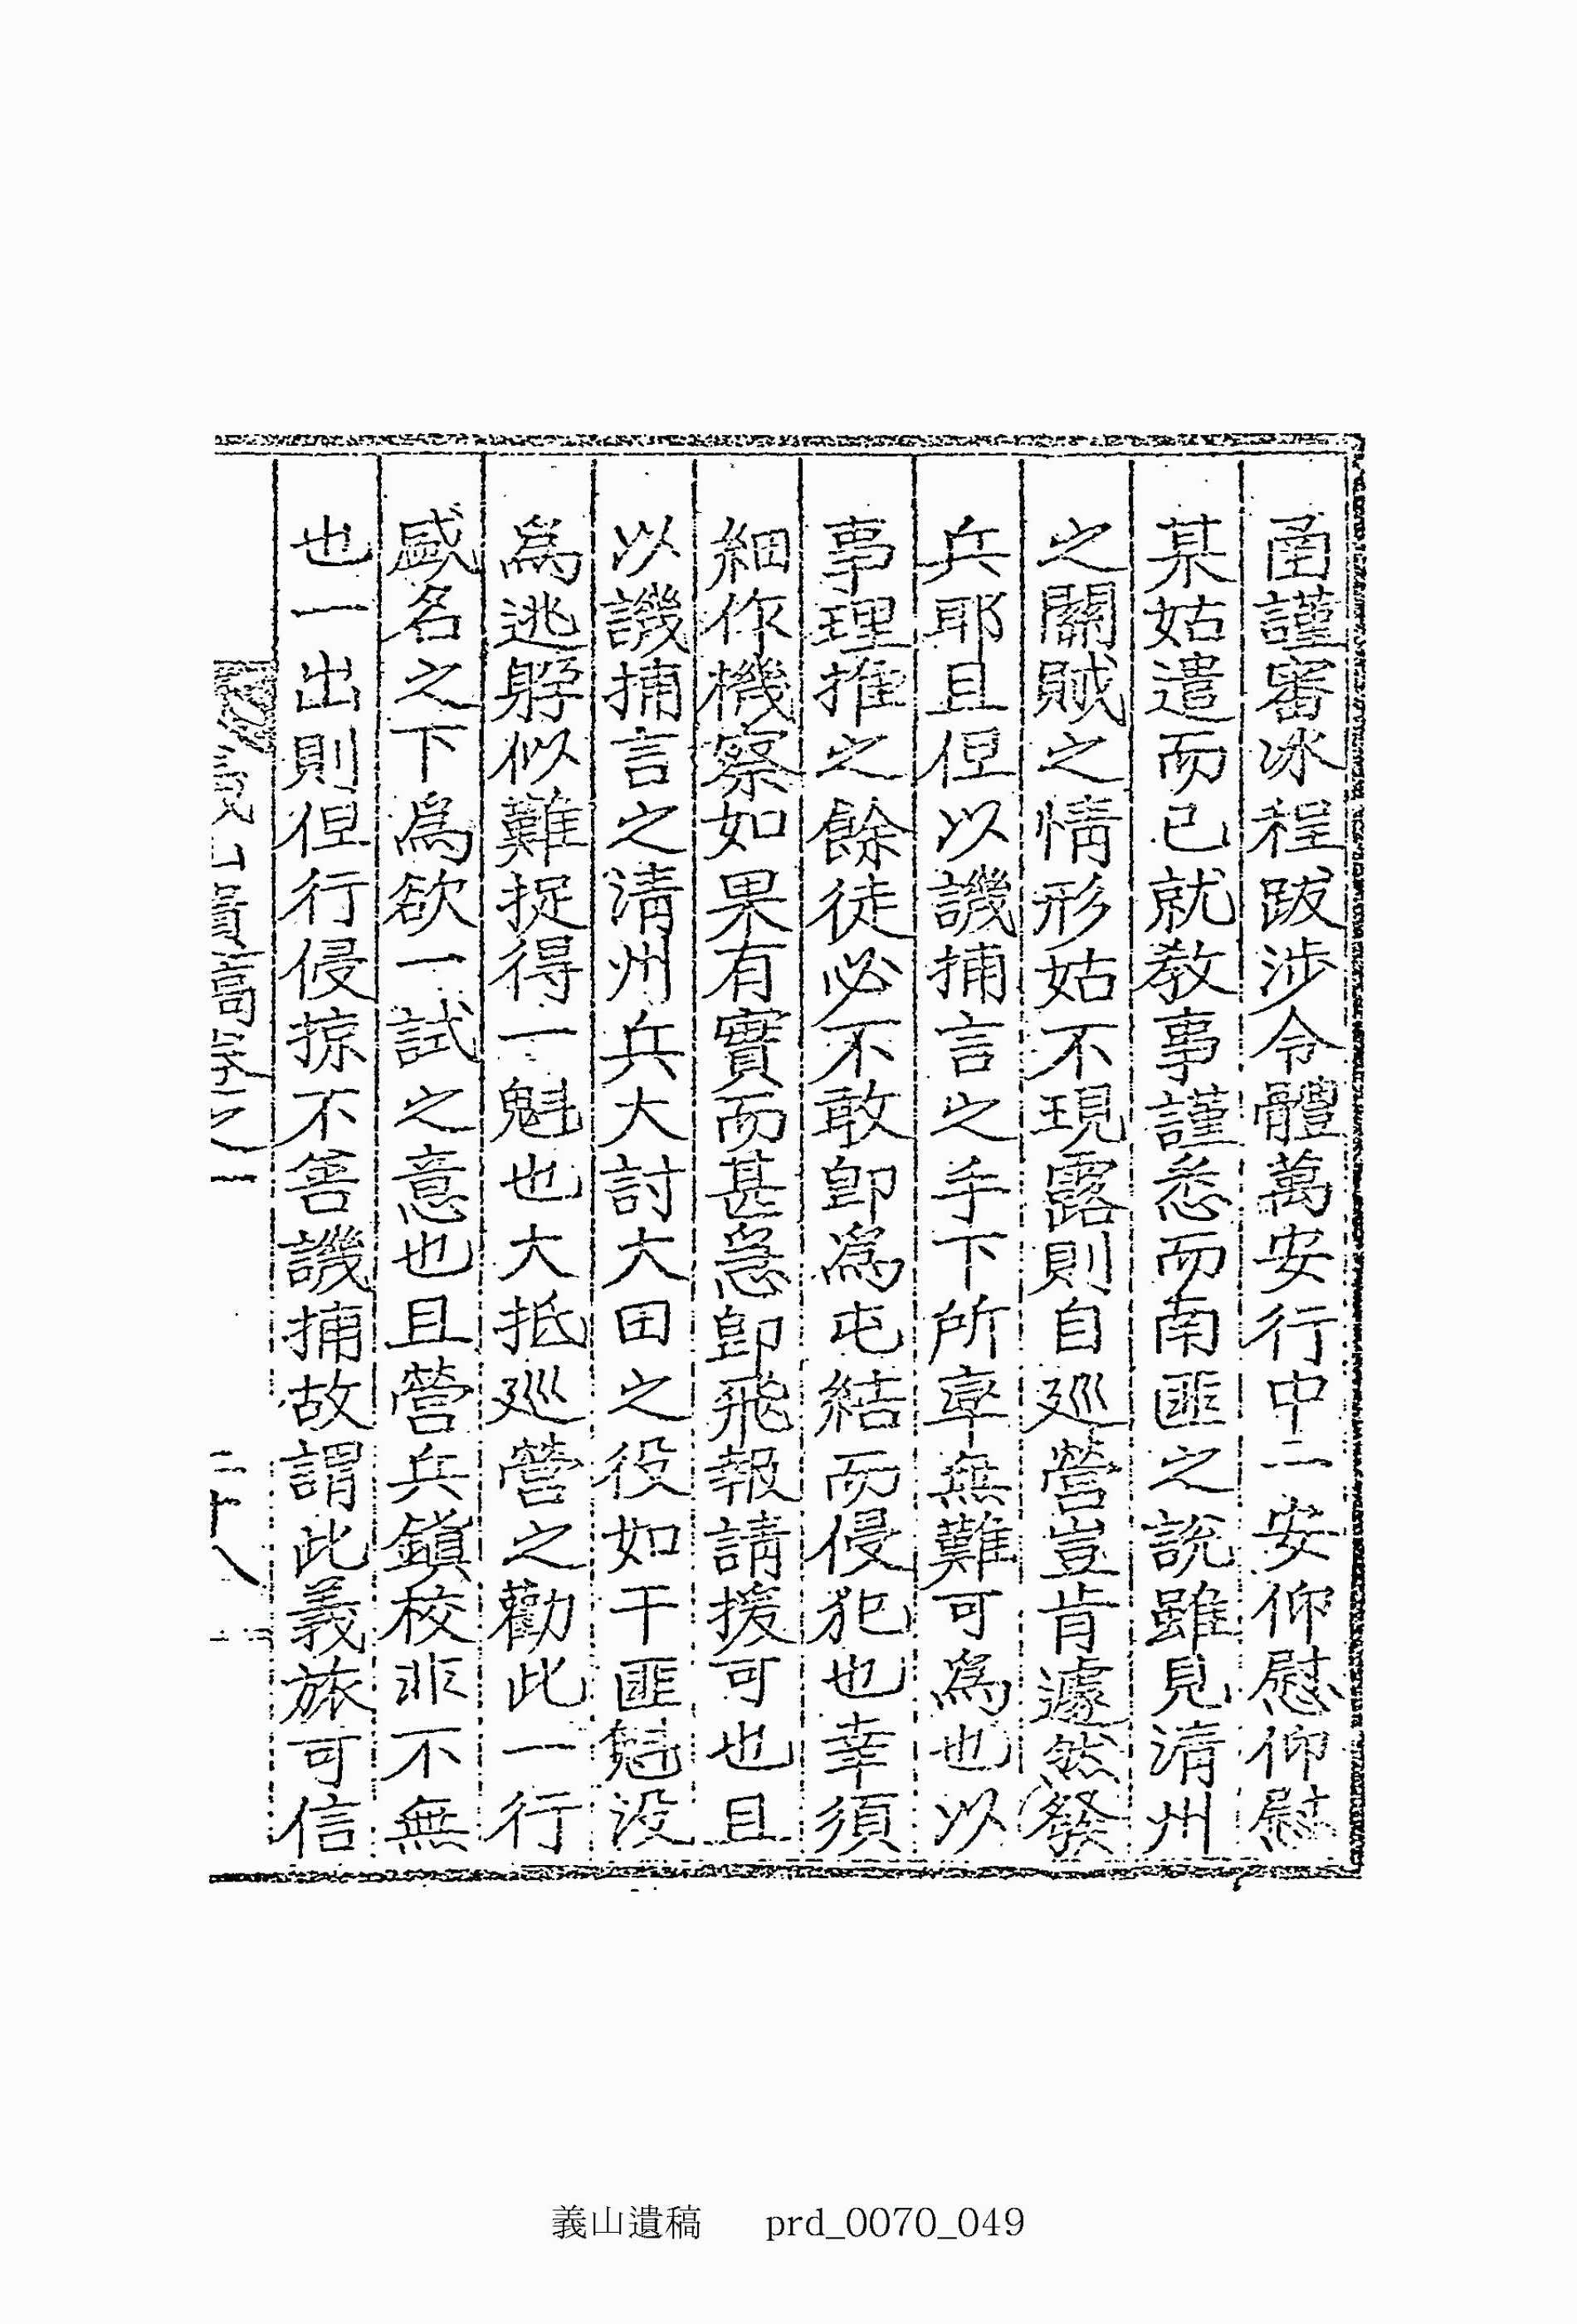 函謹審氷程跋涉令體萬安行中一安仰慰仰慰
某姑遣而已就敎事謹悉而南匪之說雖見淸州
之關賊之情形姑不現露則自巡營豈肯遽然發
兵耶且但以譏捕言之手下所率無難可爲也以
事理推之餘徒必不敢卽爲屯結而侵犯也幸須
細作機察如果有實而甚急卽飛報請援可也且
以譏捕言之淸州兵大討大田之役如干匪魁設
爲逃躱似難捉得一魁也大抵巡營之勸此一行
盛名之下爲欲一試之意也且營兵鎭校非不無
也一出則但行侵掠不善譏捕故謂此義旅可信
義山遺稿卷之一
二十八
義山遺稿 prd_0070_049